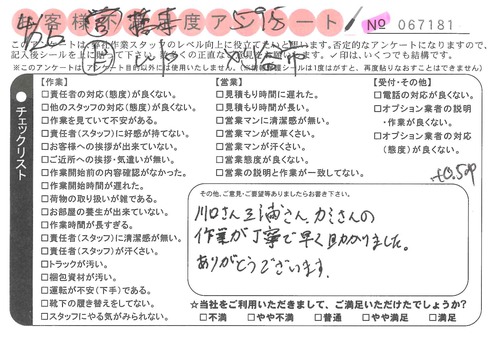 お客様不満足度アンケート
No 067181
このアンケートは、弊社作業スタッフのレベル向上に役立てたいと思います。否定的なアンケートになりますので、
記入後シールを上に貼って下さい。
(※このアンケートは、アンケート目的以外には使用いたしません。)
チェックリスト
【作業】
□責任者の対応(態度)が良くない。
□他のスタッフの対応(態度)が良くない。
□作業を見ていて不安がある。
□責任者(スタッフ)に好感が持てない。
□お客様への挨拶が出来ていない。
□ご近所への挨拶・気遣いが無い。
□作業開始前の内容確認がなかった。
□作業開始時間が遅れた。
□荷物の取り扱いが雑である。
□お部屋の養生が出来ていない。
□作業時間が長すぎる。
□責任者(スタッフ)に清潔感が無い。
□責任者(スタッフ)が汗くさい。
□トラックが汚い。
□梱包資材が汚い。
□運転が不安(下手)である。
□靴下の履き替えをしてない。
□スタッフにやる気がみられない。
【営業】
□見積もり時間に遅れた。
□見積もり時間が長い。
□営業マンに清潔感が無い。
□営業マンが煙草くさい。
□営業マンが汗くさい。
□営業態度が良くない。
□営業の説明と作業が一致してない。
【受付・その他】
□電話の対応が良くない。
□オプション業者の説明
・作業が良くない。
□オプション業者の対応
(態度)が良くない。
+0.5p
その他、ご意見・ご要望等ありましたらお書き下さい。
川口さん 三浦さん カミさんの
作業が丁寧で早く助かりました。
ありがとうございます。
☆当社をご利用いただきまして、ご満足いただけたでしょうか?
□不満 □やや不満 □普通 □やや満足 □満足